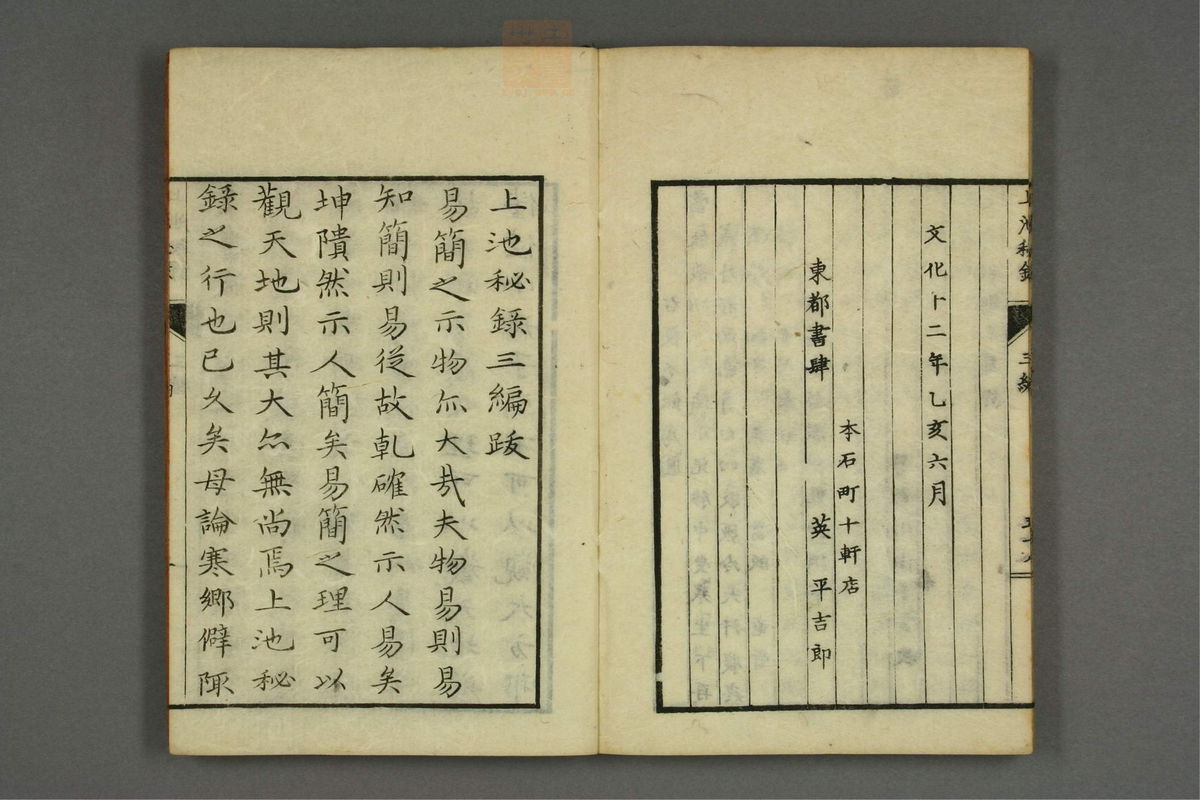 文化十二年乙亥六月
本石町十軒店
東都書肆 英平吉郎
上池秘錄三編跋
易簡之示物尒大哉夫物易則易
知簡則易從故乾確然示人易矣
坤隤然示人簡矣易簡之理可以
觀天地則其大尒無尚焉上池秘
錄之行也已久矣毋論寒鄉僻陬
三編